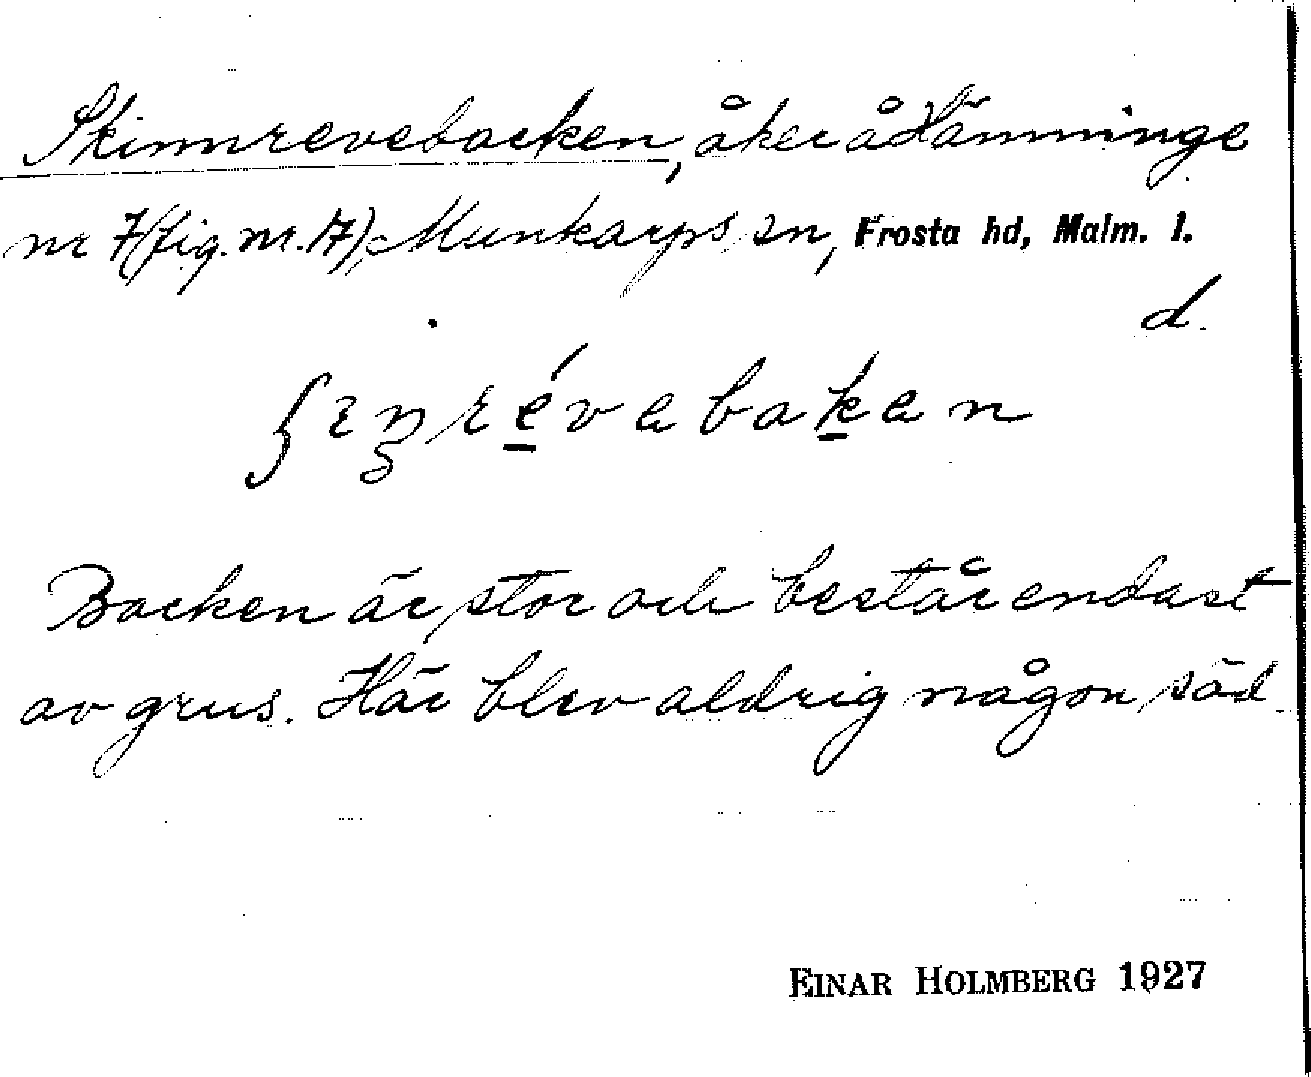 Skinnrevebacken, åker å Hänninge
nr 7 (fig. nr. 17), Munkarps sn, Frosta hd, Malm. l.
d.
Backen är stor och består endast
av grus. Här blev aldrig någon säd
EINAR HOLMBERG 1927